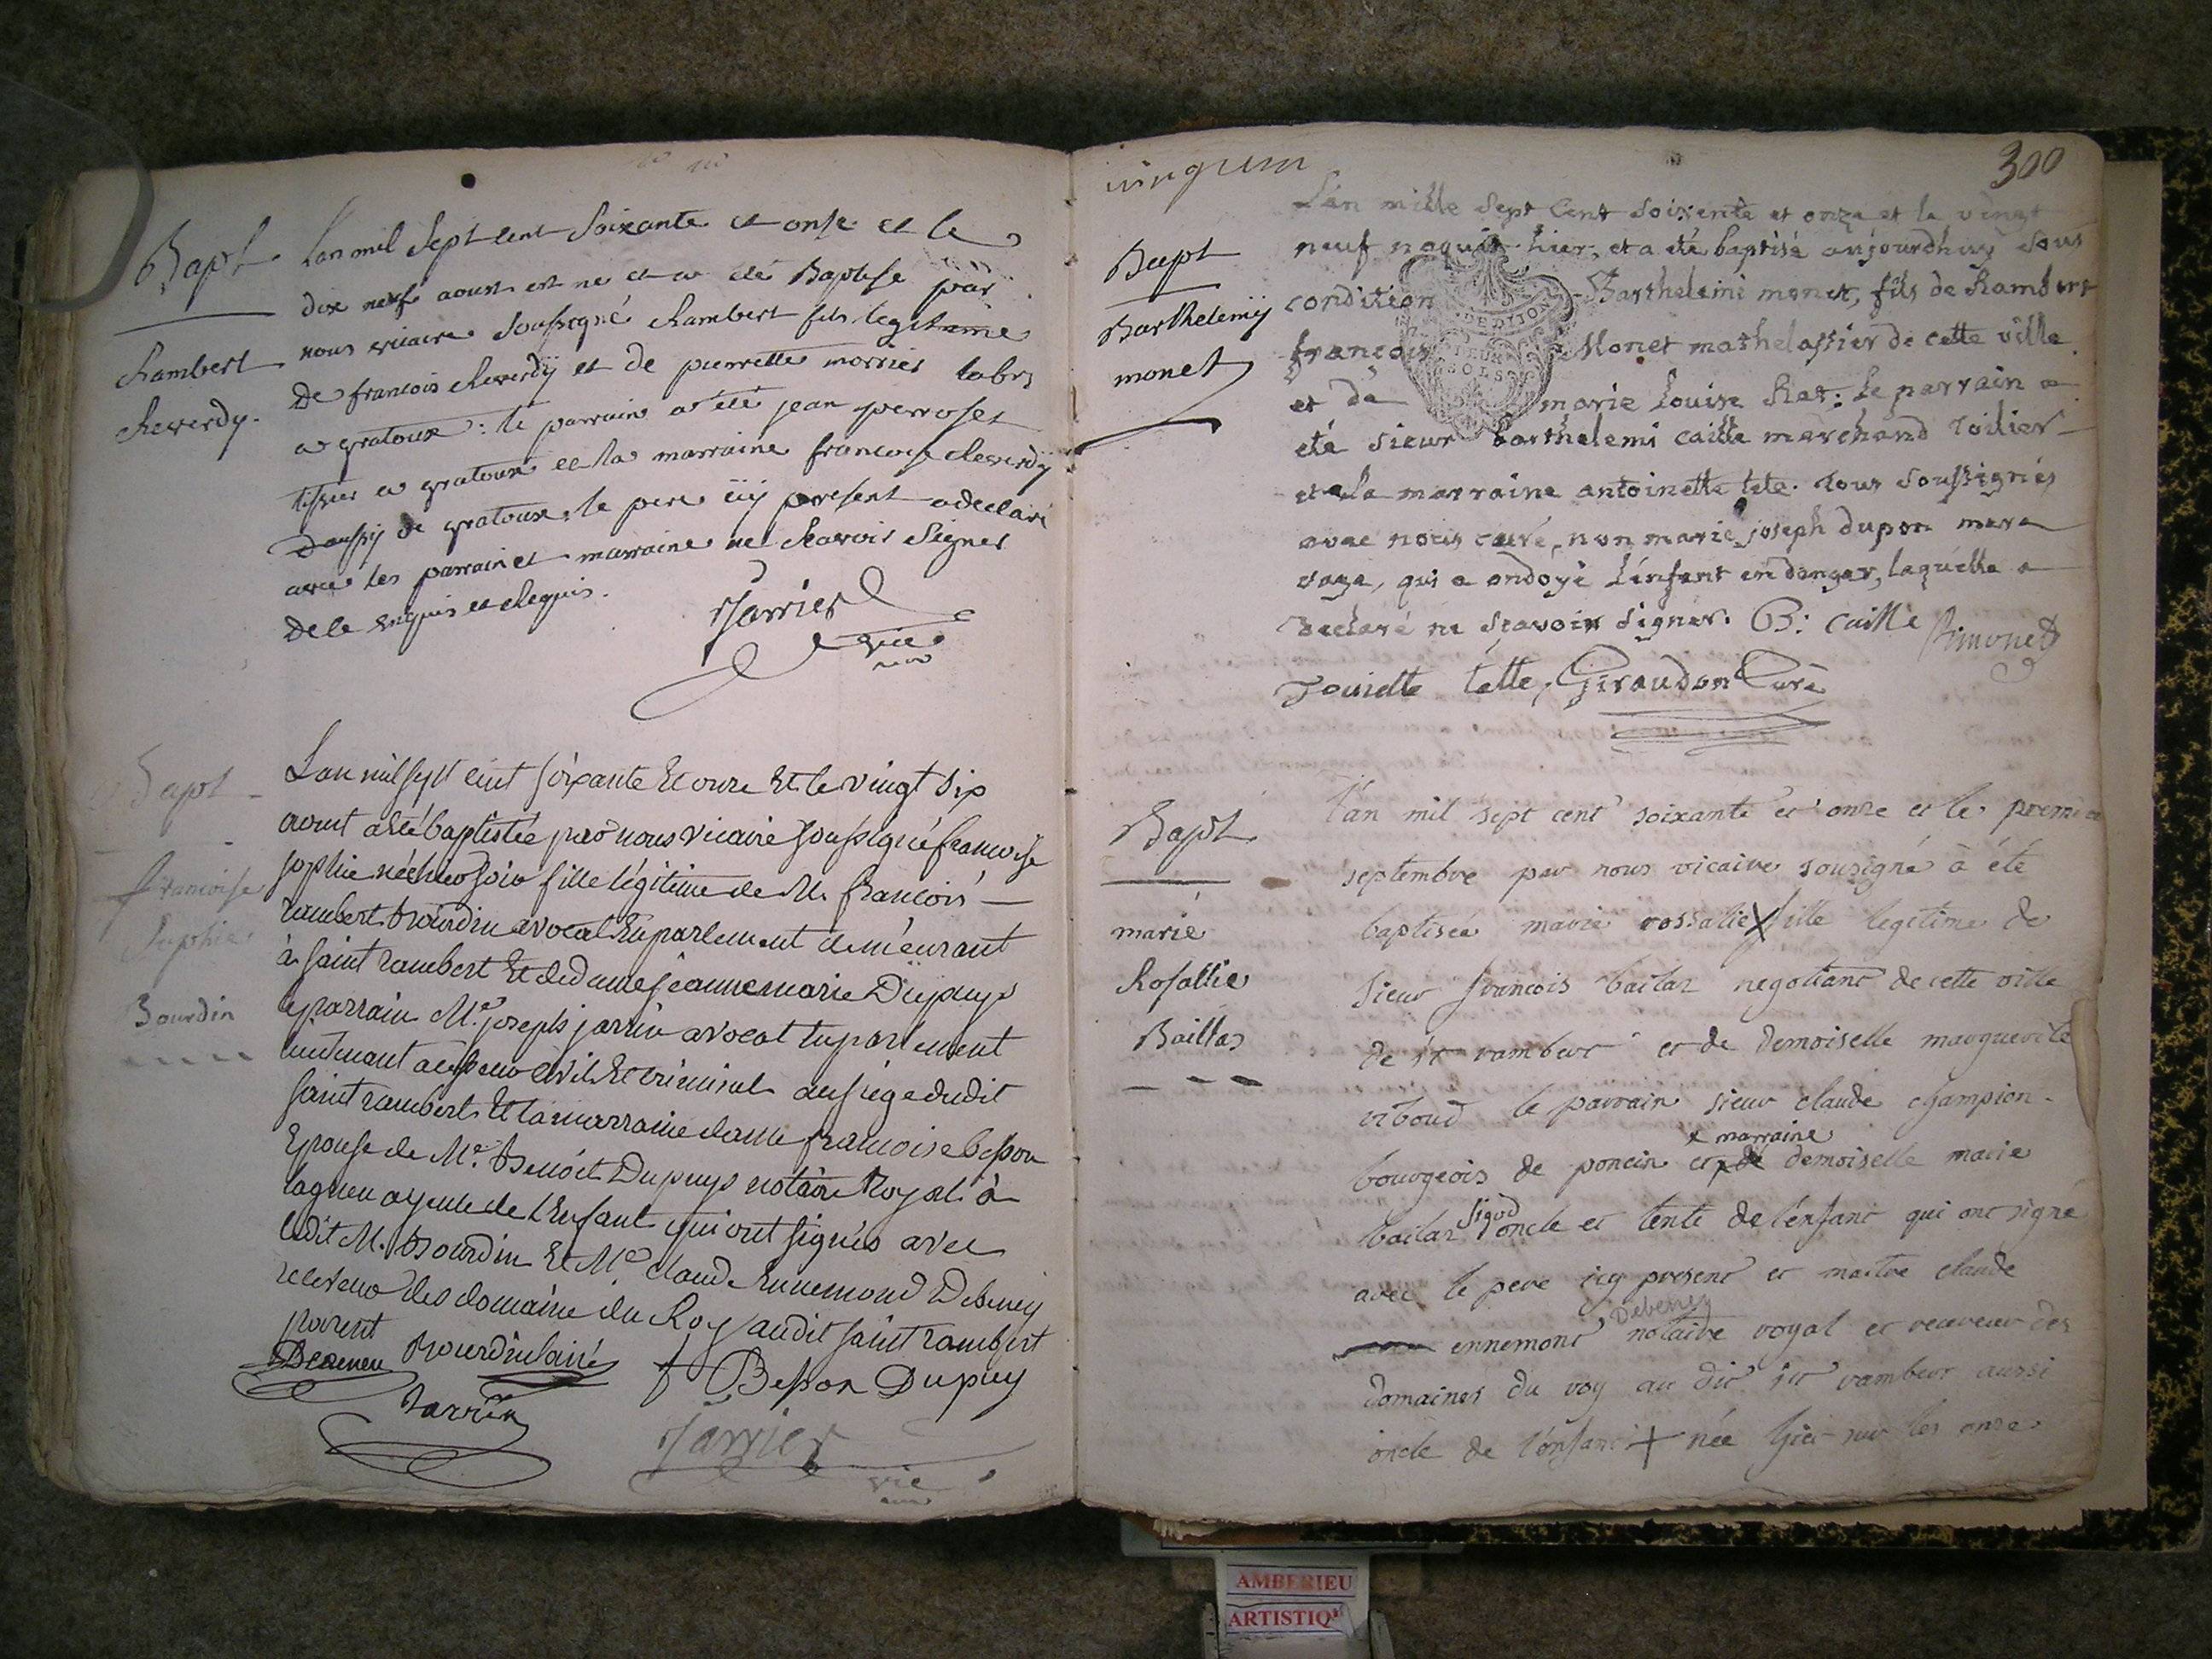 Bapt
Rambert
Reverdy.
Lan mil Sept cent Soixante et onse et le
dix neuf aoust est né et a été Baptise par
nous vicaire Soussigné Rambert fils legitime
De francois Reverdy et de pierrette morrier labrs
a gratoux : le parrain a été jean perroset
tissier a gratoux et la marraine francoise Reverdy
Daussy de gratoux, le pere icy present a declaré
avec les parrain et marraine ne scavoir Signer
de ce enquis et Requis.
Jarrier
vic
Bapt
francoise
Sophie
Bourdin
L'an mil sept cent soixante Et onze Et le vingt six
aout a été baptisée par nous vicaire soussigné francoise
sophie née hier soir fille légitime de M. françois
rambert Bourdin avocat En parlement demeurant
à saint rambert Et de dame jeanne marie Dupuys
parrain Me. joseph jarrin avocat En parlement
lieutenant civil Et criminel au siege dudit
saint rambert Et la marraine dame francoise besson
Epouse de Me. Benoit Dupuys notaire Royal à
lagneu ayeule de l'Enfant qui ont signés avec
ledit M. Bourdin Et Me. claude Ennemond Debeney
receveur des domaine du Roy audit saint rambert
parent
Debeney Bourdin lainé f Besson Dupuy
Jarrin
Jarrier
vic
vingt un
300
Bapt
Barthelemÿ
monet
L'an mille sept Cent soixente et onze et le vingt
neuf naquit hier, et a été baptisé aujourdhuy sous
condition Barthelemi monet, fils de Rambert
françois Monet mathelassier de cette ville
et de marie Louise Rat : Le parrain a
été sieur barthelemi caille marchand toilier
et la marraine antoinette tete. tous soussignés
avec nous curé, non marie joseph dupon mere
sage, qui a ondoyé L'enfant en danger, laquelle a
Declaré ne scavoir signer. B : Caille Rimonet
Touiette tette, Giraudon Curé
DE DIJON
DEUX
SOLS
Bapt
marie
Rosallie
Baillas
l'an mil sept cent soixante et onze et le premier
septembre par nous vicaire sousigné à été
baptisée marie rossalie X fille legitime de
sieur francois bailaz negotiant de cette ville
de st rambert et de demoiselle marguerite
riboud le parrain sieur claude champion
bourgeois de poncin et marraine demoiselle marie
bailaz sigod oncle et tente de l'enfant qui ont signé
avec le pere icy present et maitre claude
ennemont Debeney notaire royal et receveur des
domaines du roy au dit st rambert aussi
oncle de l'enfant + née hier sur les onze
AMBERIEU
ARTISTIQ